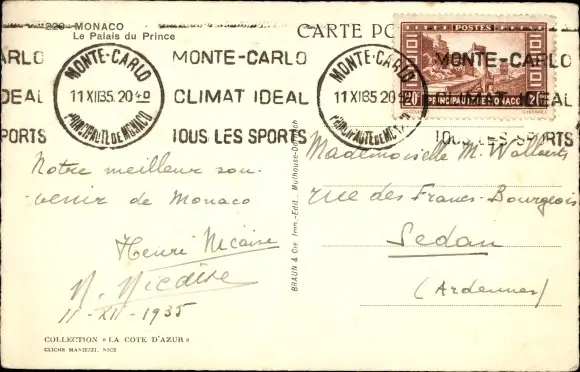 226 - MONACO
Le Palais du Prince
CARTE PO
MONTE-CARLO
11 XII 35. 20 40
PRINCIPAUTE DE MONACO
MONTE-CARLO
CLIMAT IDEAL
TOUS LES SPORTS
MONTE-CARLO
11 XII 35. 20 40
PRINCIPAUTE DE MONACO
MONTE-CARLO
IDEAL
TOUS LES SPORTS
ARLO
DEAL
PORTS
POSTES
20c PRINCIPAUTE DE MONACO 20c
Notre meilleur sou-
venir de Monaco
Henri Nicaise
N. Nicaise
11-XII-1935
COLLECTION « LA COTE D'AZUR »
CLICHE MANIEZZI, NICE
BRAUN & Cie Imp.-Edit., Mulhouse-Dornach
Mademoiselle M.
rue des Francs-Bourgeois
Sedan
(Ardennes)